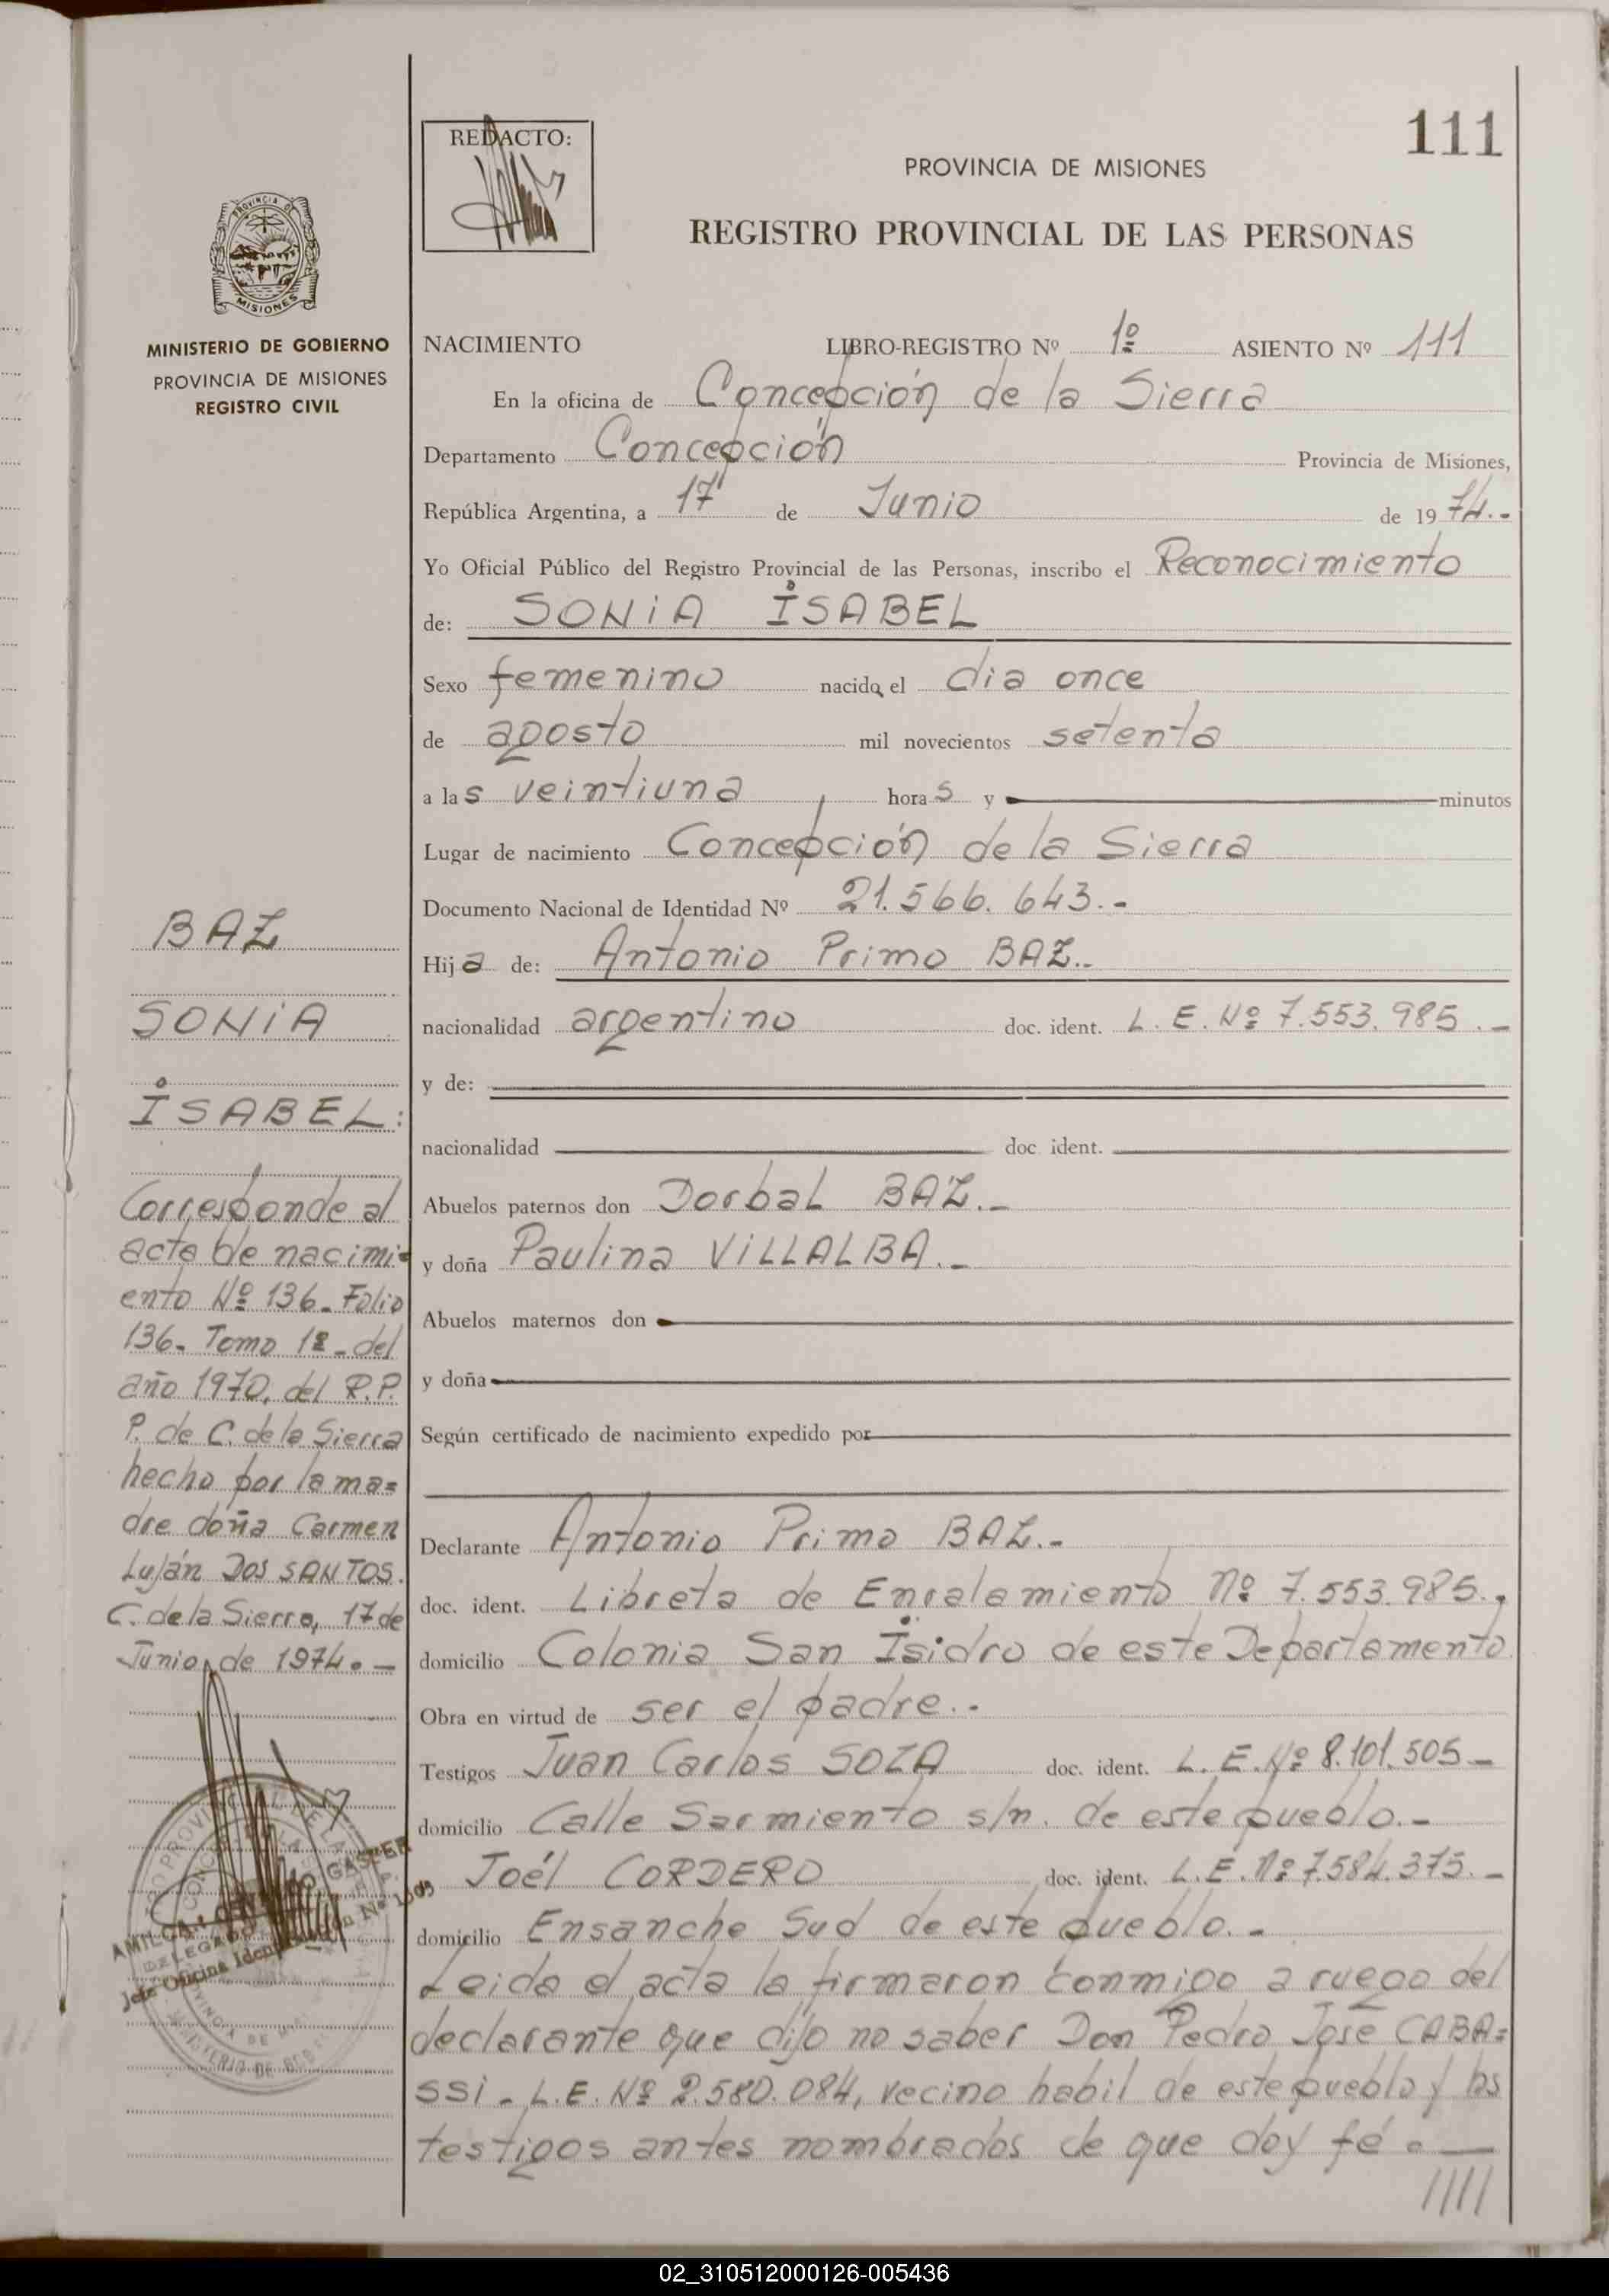 111
REDACTO:
PROVINCIA DE MISIONES
REGISTRO PROVINCIAL DE LAS PERSONAS
PROVINCIA DE
MISIONES
MINISTERIO DE GOBIERNO
PROVINCIA DE MISIONES
REGISTRO CIVIL
NACIMIENTO LIBRO-REGISTRO Nº 1º ASIENTO Nº 111
En la oficina de Concepción de la Sierra
Departamento Concepción Provincia de Misiones,
República Argentina, a 17 de Junio de 1974.-
Yo Oficial Público del Registro Provincial de las Personas, inscribo el Reconocimiento
de: SONIA ISABEL
Sexo femenino nacida el dia once
de agosto mil novecientos setenta
a las veintiuna horas y minutos
Lugar de nacimiento Concepción de la Sierra
Documento Nacional de Identidad Nº 21.566.643.-
Hija de: Antonio Primo BAZ.-
nacionalidad argentino doc. ident. L.E. Nº 7.553.985.-
y de:
nacionalidad doc. ident.
Abuelos paternos don Dorbal BAZ.-
y doña Paulina VILLALBA.-
Abuelos maternos don
y doña
Según certificado de nacimiento expedido por
Declarante Antonio Primo BAZ.-
doc. ident. Libreta de Enralamiento Nº 7.553.985.,
domicilio Colonia San Isidro de este Departamento
Obra en virtud de ser el padre.-
Testigos Juan Carlos SOZA doc. ident. L.E. Nº 8.101.505-
domicilio Calle Sarmiento s/n. de este pueblo.-
Joél CORDERO doc. ident. L.E. Nº 7.584.375.-
domicilio Ensanche Sud de este pueblo.-
Leida el acta la firmaron conmigo a ruego del
declarante que dijo no saber Don Pedro José CABA=
SSI - L.E. Nº 2.580.084, vecino habil de este pueblo y los
testigos antes nombrados de que doy fé.-
1111
BAZ
SONIA
ISABEL:
Corresponde al
acta de nacimi-
ento Nº 136- Folio
136- Tomo 1º- del
año 1970, del R.P.
P. de C. de la Sierra
hecho por la ma=
dre doña Carmen
Luján DOS SANTOS.
C. de la Sierra, 17 de
Junio de 1974.-
GASPER
DELEGADO
Jefe Oficina
02_310512000126-005436